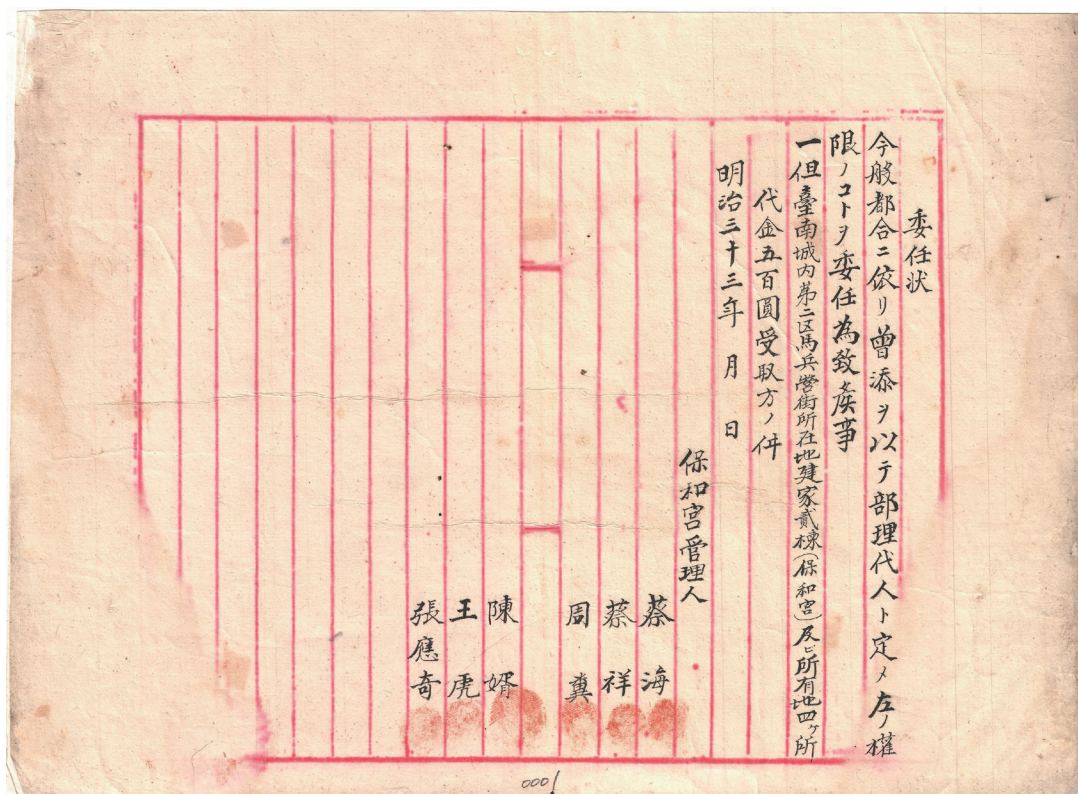 委任状
今般都合ニ依リ曽添ヲ以テ部理代人ト定メ左ノ權
限ノコトヲ委任為致候事
一但臺南城内第二区馬兵營街所在地建家貳棟(保和宮)及ビ所有地四ヶ所
代金五百圓受取方ノ件
明治三十三年 月 日
保和宮管理人
蔡海
蔡祥
周糞
陳婿
王虎
張應奇
0001